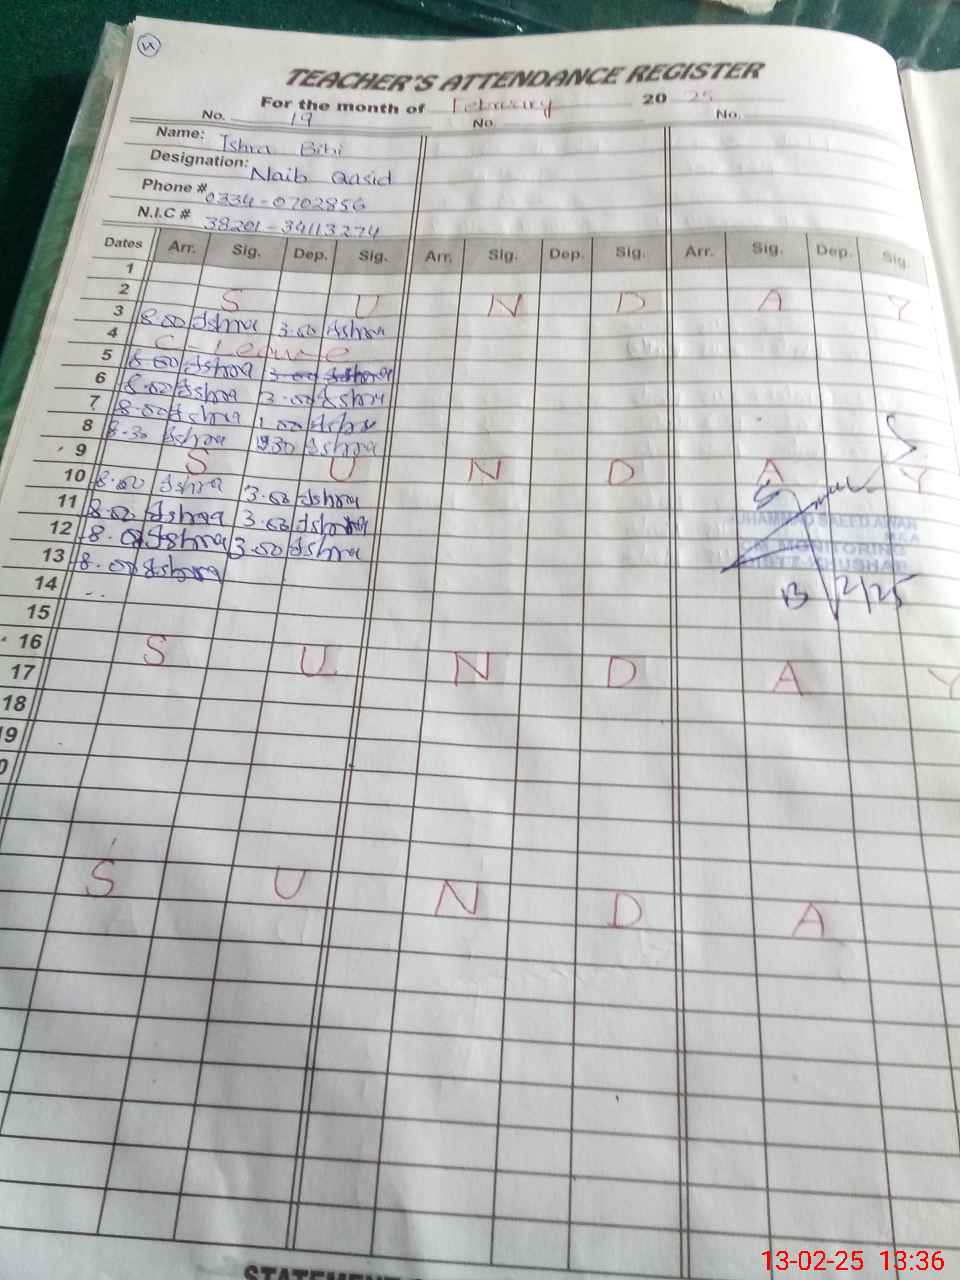 VI
TEACHER'S ATTENDANCE REGISTER
For the month of February 20 25
No. 19 No. No.
Name: Ishra Bibi
Designation: Naib Qasid
Phone # 0334-0702856
N.I.C # 38201-34113274
Dates Arr. Sig. Dep. Sig. Arr. Sig. Dep. Sig. Arr. Sig. Dep. Sig.
1
2 S U N D A Y
3 8.00 Ishra 3.00 Ishra
4 C-Leave
5 8.00 Ishra 3.00 Ishra
6 8.00 Ishra 3.00 Ishra
7 8.00 Ishra 1.00 Ishra
8 8.30 Ishra Ishra
9 S U N D A Y
10 8.00 Ishra 3.00 Ishra
11 8.00 Ishra 3.00 Ishra
12 8.00 Ishra 3.00 Ishra
13 8.00 Ishra
14
15
16 S U N D A Y
17
18
19
S U N D A
MUHAMMAD SAEED AWAN
MEA
MONITORING
KHUSHAB
13/2/25
STATEMENT
13-02-25 13:36